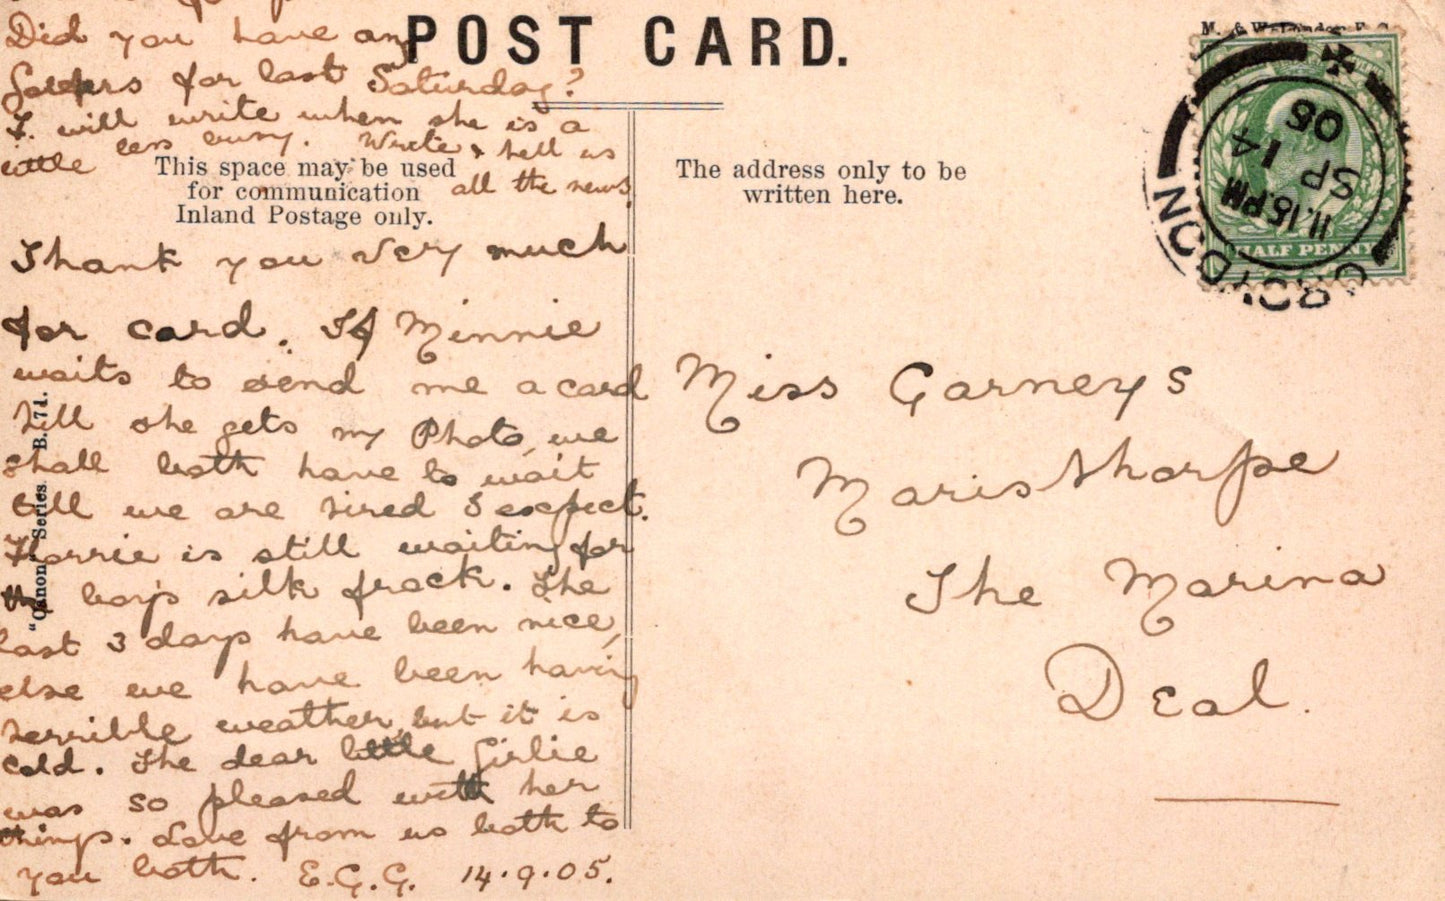 Did you have any
for last Saturday?
I will write when she is a
little less busy. Write & tell us
all the news.
Thank you very much
for card. If Minnie
waits to send me a card
till she gets my Photo, we
shall both have to wait
till we are tired I expect.
Florrie is still waiting for
boy's silk frock. The
last 3 days have been nice,
else we have been having
terrible weather, but it is
cold. The dear little Girlie
was so pleased with her
things. Love from us both to
you both. E.G.G. 14.9.05.
POST CARD.
This space may be used
for communication
Inland Postage only.
The address only to be
written here.
"Canon" Series B. 71.
M. & W. London E.C.
CROYDON
11.15 PM
SP 14
05
HALF PENNY
Miss Garneys
Maristhorpe
The Marina
Deal.